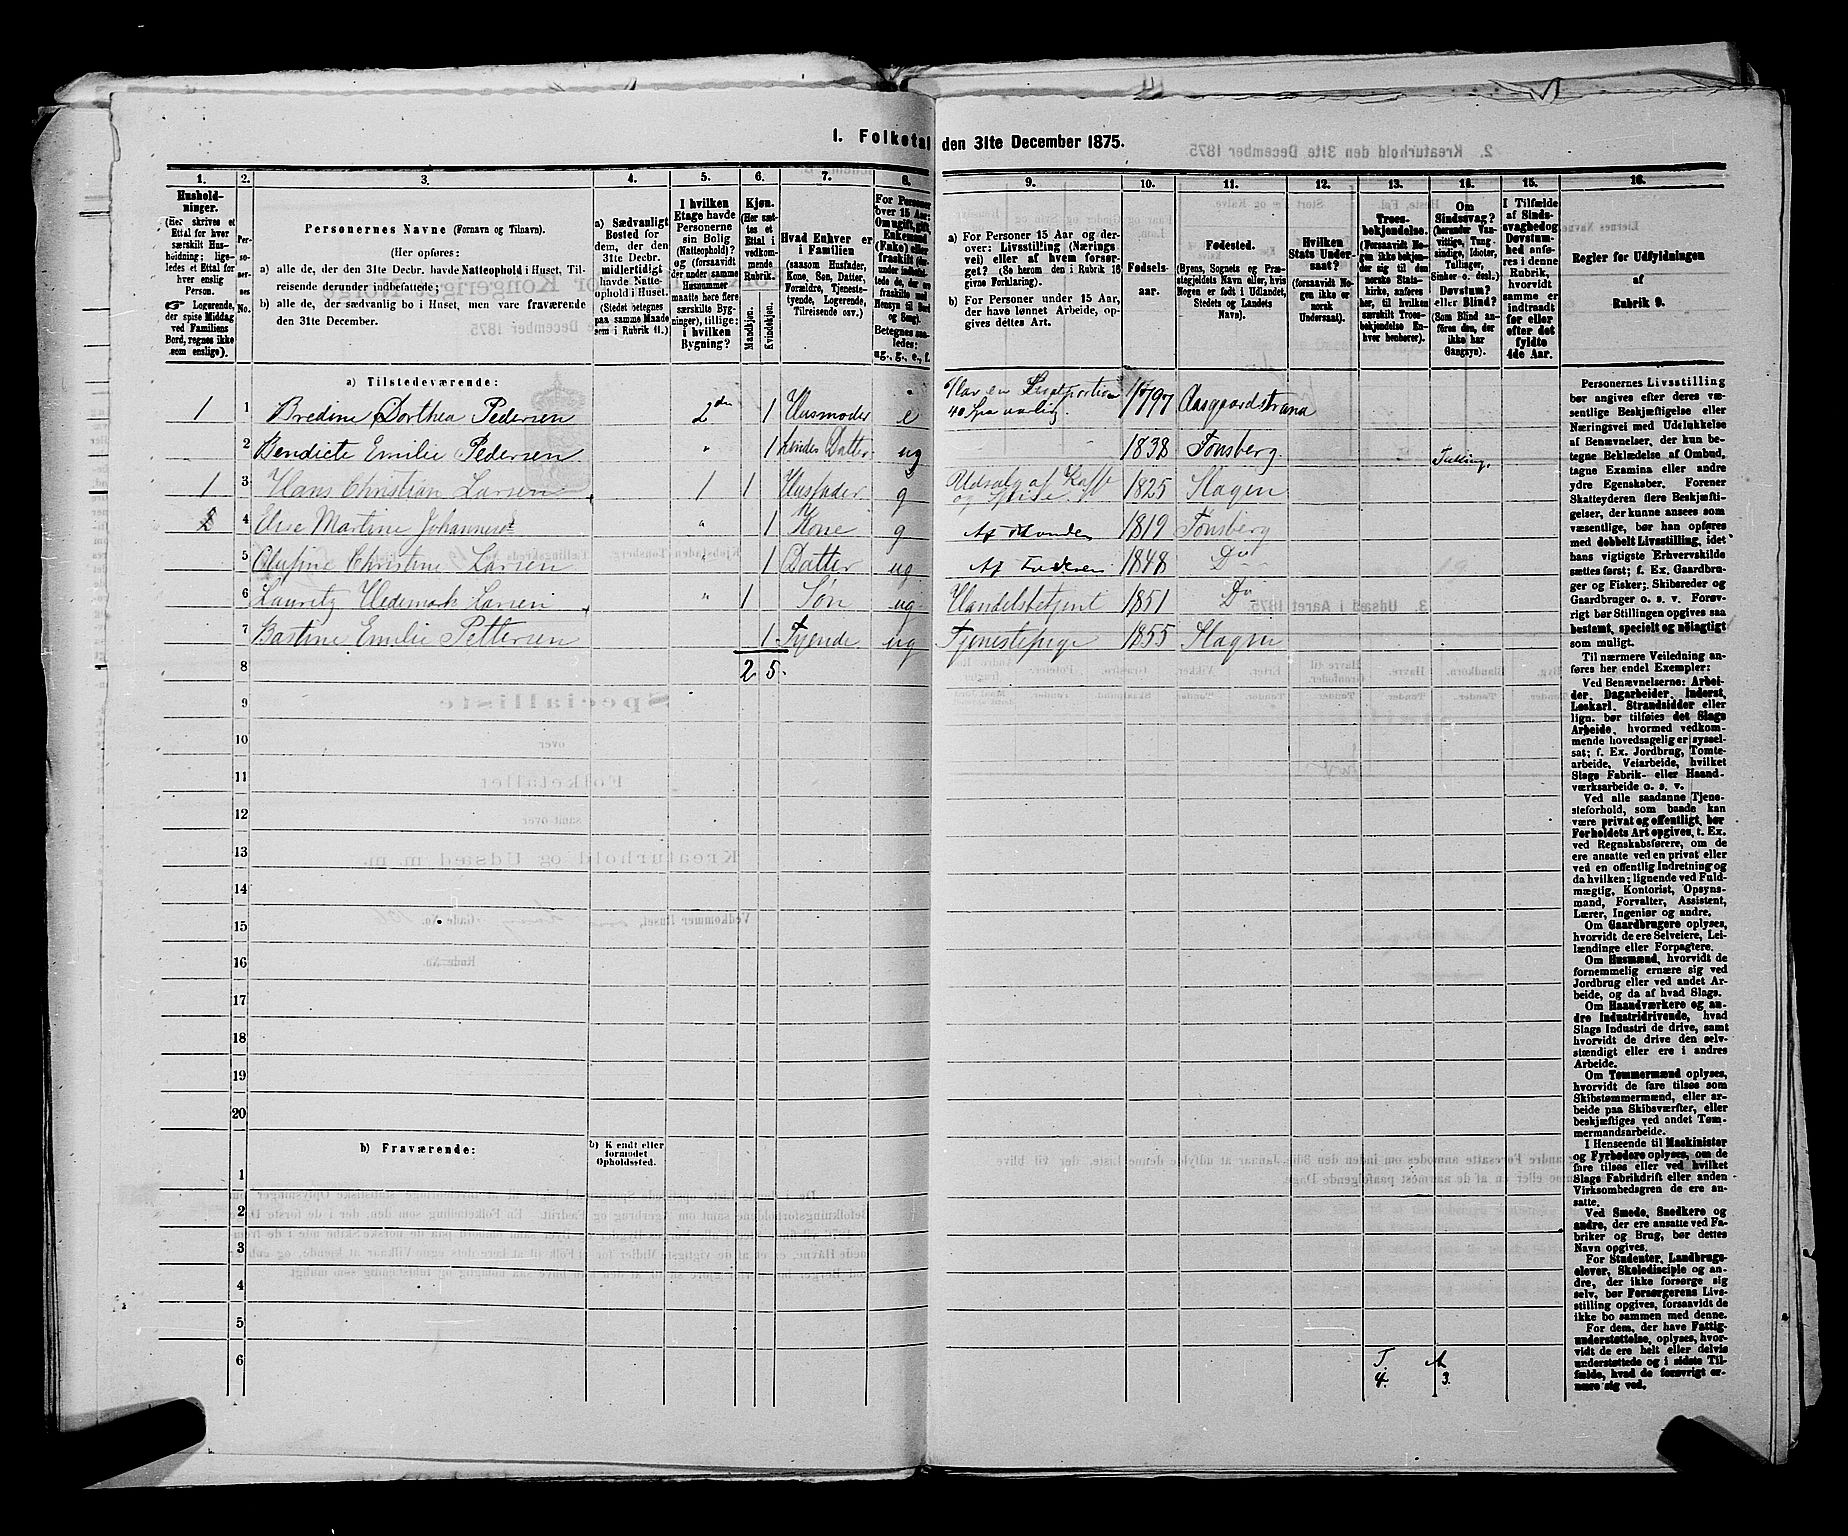 I. Folketal den 31te December 1875.
1. 2. 3. 4. 5. 6. 7. 8. 9. 10. 11. 12. 13. 14. 15. 16.
Hushold-
ninger.
(Her skrives et
Ettal for hver
særskilt Hus-
holdning; lige-
ledes et Ettal for
hver enslig
Person.
☞ Logerende,
der spise Middag
ved Familiens
Bord, regnes ikke
som enslige).
Per-
so-
ner-
nes
No.
Personernes Navne (Fornavn og Tilnavn).
(Her opføres:
a) alle de, der den 31te Decbr. havde Natteophold i Huset, Til-
reisende derunder indbefattede;
b) alle de, der sædvanlig bo i Huset, men vare fraværende
den 31te December.
a) Sædvanligt
Bosted for
dem, der den
31te Decbr.
midlertidigt
havde Natte-
ophold i Huset.
(Stedet betegnes
paa samme Maade
som i Rubrik 11.)
I hvilken
Etage havde
Personerne
sin Bolig
(Natteophold)?
og (forsaavidt
der under samme
Husnummer
maatte høre flere
særskilte Byg-
ninger), tillige:
i hvilken
Bygning?
Kjøn.
(Her sæt-
tes et
Ettal i
vedkom-
mende
Rubrik.
Mandkjøn.
Kvindekjøn.
Hvad Enhver er
i Familien
(saasom Husfader,
Kone, Søn, Datter,
Forældre, Tjeneste-
tyende, Logerende,
Tilreisende osv.)
For Personer
over 15 Aar:
Om ugift, gift,
Enkemand
(Enke) eller
fraskilt
Betegnes saa-
ledes:
ug., g., e., f.
a) For Personer 15 Aar og der-
over: Livsstilling (Nærings
vei) eller af hvem forsør-
get? (Se herom den i Rubrik 16
givne Forklaring).
b) For Personer under 15 Aar,
der have lønnet Arbeide, op-
gives dettes Art.
Fødsels-
aar.
Fødested.
(Byens, Sognets og Præ-
stegjeldets Navn eller, hvis
Nogen er født i Udlandet,
Stedets og Landets
Navn).
Hvilken
Stats Under-
saat?
(forsaavidt No-
gen ikke er
norsk
Undersaat).
Troes-
bekjendelse.
(Forsaavidt No-
gen ikke bekjen-
der sig til den
norske Stats-
kirke, anføres
her, til hvilken
særskilt Troes-
bekjendelse En-
hver henhører).
Om
Sindssvag?
(herunder Van-
vittige, Tung-
sindige, Idioter,
Tullinger,
Sinker o. desl.)
Døvstum?
eller Blind?
(Som Blind an-
føres den, der
ikke har
Gangsyn).
I Tilfælde
af Sinds-
svaghed og
Døvstum-
hed anfø-
res i denne
Rubrik,
hvorvidt
samme er
indtraadt
før eller
efter det
fyldte
4de Aar.
Regler for Udfyldningen
af
Rubrik 9.
a) Tilstedeværende:
1 1 Bredine Dorthea Pedersen 2den 1 Husmoder e Har en 40 Spd aarlig. 1797 Aasgaardstrand
2 Bendicte Emilie Pedersen " 1 hendes Datter ug 1838 Tønsberg Tulling.
1 3 Hans Christian Larsen 1 1 Husfader g Udsalg af Kaffe og 1825 Slagen
4 Elise Martine Johannesd. " 1 Kone g Af Manden 1819 Tønsberg
5 Olufine Christine Larsen " 1 Datter ug Af Faderen 1848 Do
6 Lauritz Hedemark Larsen " 1 Søn ug Handelsbetjent 1851 Do
7 Bastine Emilie Pettersen 1 Tjende ug Tjenestepige 1855 Slagen
8 2 5
9
10
11
12
13
14
15
16
17
18
19
20
b) Fraværende:
b) Kjendt eller
formodet
Opholdssted.
1
2
3
4
5
6
T. A
4. 3.
Personernes Livsstilling
bør angives efter deres væ-
sentlige Beskjæftigelse eller
Næringsvei med Udelukkelse
af Benævnelser, der kun be-
tegne Beklædelse af Ombud,
tagne Examina eller andre
ydre Egenskaber. Forener
Skatteyderen flere Beskjæfti-
gelser, der kunne ansees som
væsentlige, bør han opføres
med dobbelt Livsstilling, idet
hans vigtigste Erhvervskilde
sættes først; f. Ex. Gaardbru-
ger og Fisker; Skibsreder og
Gaardbruger o. s. v. Forøv-
rigt bør Stillingen opgives saa
bestemt, specielt og nøiagtigt
som muligt.
Til nærmere Veiledning an-
føres her endel Exempler:
Ved Benævnelserne: Arbei-
der, Dagarbeider, Inderst,
Løskarl, Strandsidder eller
lign. bør tilføies det Slags
Arbeide, hvormed vedkom-
mende hovedsagelig er syssel-
sat; f. Ex. Jordbrug, Tomte-
arbeide, Veiarbeide, hvilket
Slags Fabrik- eller Haand-
værksarbeide o. s. v.
Ved alle saadanne Tjene-
steforhold, som baade kan
være privat og offentligt, bør
Forholdets Art opgives, t. Ex.
ved Regnskabsførere, om de
ere ansatte ved en privat eller
ved en offentlig Indretning og
da hvilken; lignende ved Fuld-
mægtig, Kontorist, Opsyns-
mand, Forvalter, Assistent,
Lærer, Ingeniør og andre.
Om Gaardbrugere oplyses,
hvorvidt de ere Selveiere, Lei-
lændinge eller Forpagtere.
Om Husmænd, hvorvidt de
fornemmelig ernære sig ved
Jordbrug eller ved andet Ar-
beide, og da af hvad Slags.
Om Haandværkere og an-
dre Industridrivende, hvad
Slags Industri de drive, samt
hvorvidt de drive den selv-
stændigt eller ere i andres
Arbeide.
Om Tømmermænd oplyses,
hvorvidt de fare tilsøs som
Skibstømmermænd, eller ar-
beide paa Skibsværfter, eller
beskjæftiges ved andet Tøm-
mermandsarbeide.
I Henseende til Maskinister
og Fyrbødere oplyses, om de
fare tilsøs eller ved hvilket
Slags Fabrikdrift eller anden
Virksombedsgren de ere an-
satte.
Ved Smede, Snedkere og
andre, der ere ansatte ved Fa-
briker og Brug, bør dettes
Navn opgives.
For Studenter, Landbrugs-
elever, Skoledisciple og an-
dre, der ikke forsørge sig
selv, bør Forsørgerens Livs-
stilling opgives, forsaavidt de
ikke bo sammen med denne.
For dem, der have Fattig-
understøttelse, oplyses, hvor-
vidt de ere helt eller delvis
understøttede og i sidste Til-
fælde, hvad de forøvrigt er-
nære sig ved.